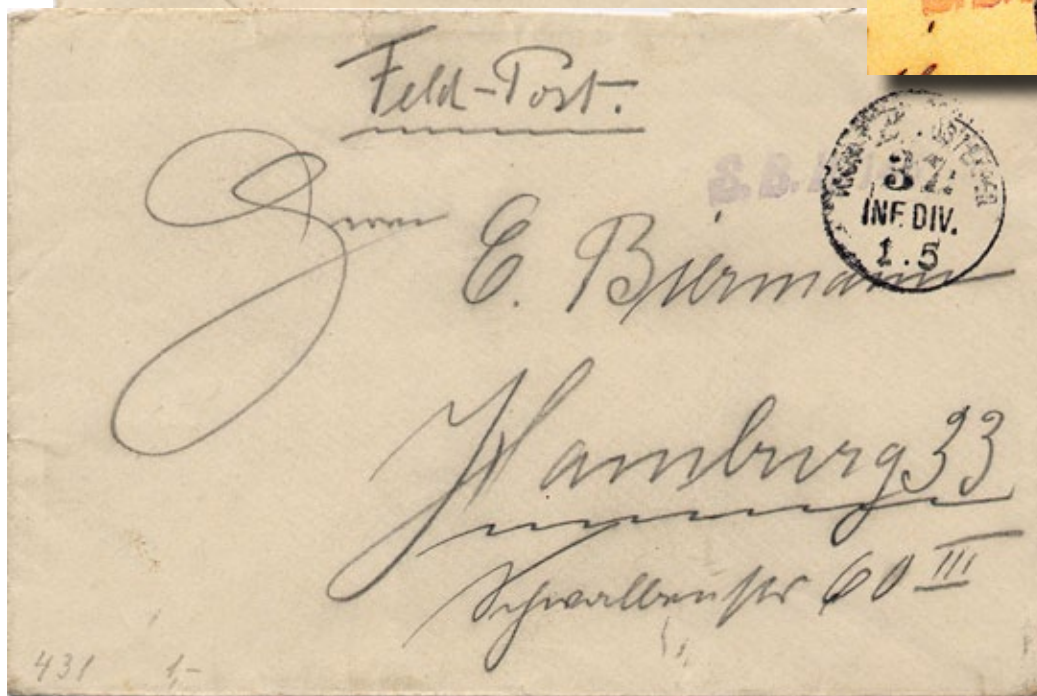 Feld-Post.
S.B.
37.
INF. DIV.
1.5
Herrn
E. Biermann
Hamburg 33
Schwalbenstr 60 III
431 1,-